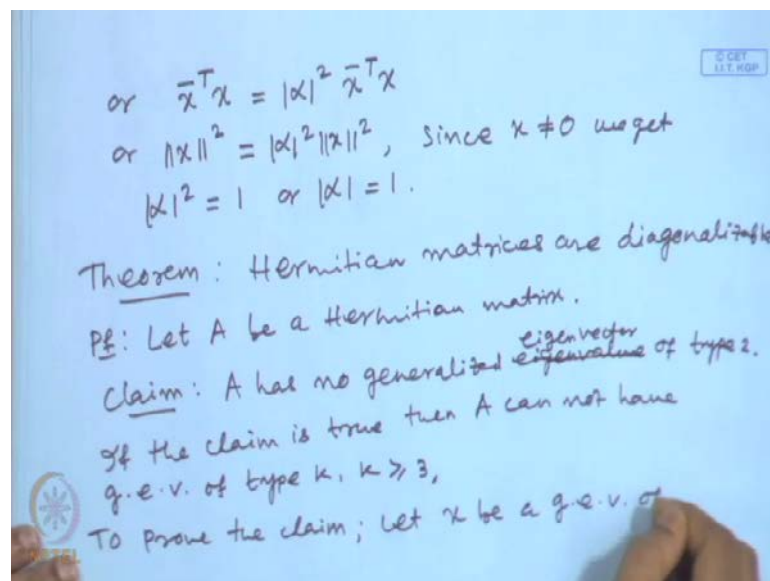 or x̄ᵀx = |α|² x̄ᵀx
© CET
I.I.T. KGP
or ||x||² = |α|² ||x||², Since x ≠ 0 we get
|α|² = 1 or |α| = 1.
Theorem: Hermitian matrices are diagonalizable
Pf: Let A be a Hermitian matrix.
eigenvector
Claim: A has no generalized eigenvalue of type 2.
If the claim is true then A can not have
g.e.v. of type k, k ≥ 3,
To prove the claim; Let x be a g.e.v. of